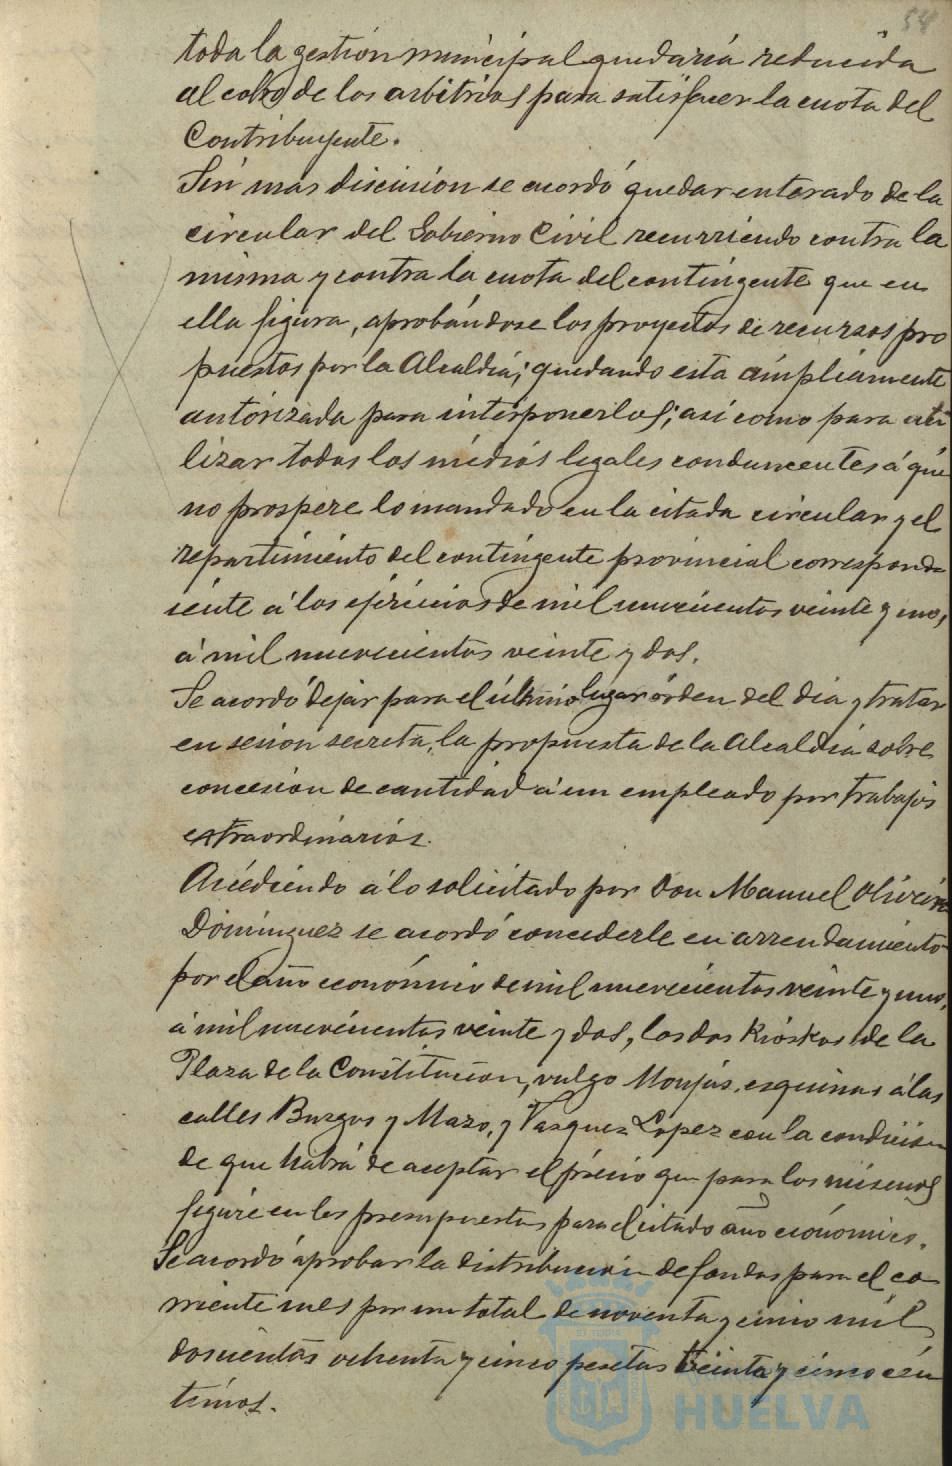 54
toda la gestión municipal quedaría reducida
al cobro de los arbitrios para satisfacer la cuota del
Contribuyente.
Sin mas discusion se acordó quedar enterado de la
circular del Gobierno Civil recurriendo contra la
misma y contra la cuota del contingente que en
ella figura, aprobándose los proyectos de recursos pro
puestos por la Alcaldia; quedando esta ampliamente
autorizada para interponerlos; asi como para uti
lizar todos los medios legales conducentes á que
no prospere lo mandado en la citada circular y el
repartimiento del contingente provincial correspond
iente á los ejercicios de mil novecientos veinte y uno,
á mil novecientos veinte y dos.
Se acordó dejar para el último lugar órden del dia y tratar
en sesion secreta, la propuesta de la Alcaldia sobre
concesion de cantidad á un empleado por trabajos
extraordinarios.
Accediendo á lo solicitado por Don Manuel Oliveira
Dominguez se acordó concederle en arrendamiento
por el año económico de mil novecientos veinte y uno,
á mil novecientos veinte y dos, los dos Kioskos de la
Plaza de la Constitucion, vulgo Monjas, esquinas á las
calles Burgos y Mazo, y Vazquez Lopez con la condicion
de que habrá de aceptar el précio que para los mismos
figure en los presupuestos para el citado año económico.
Se acordó aprobar la distribucion de fondos para el co
rriente mes por un total de noventa y cinco mil
doscientas ochenta y cinco pesetas treinta y cinco cén
timos.
HUELVA